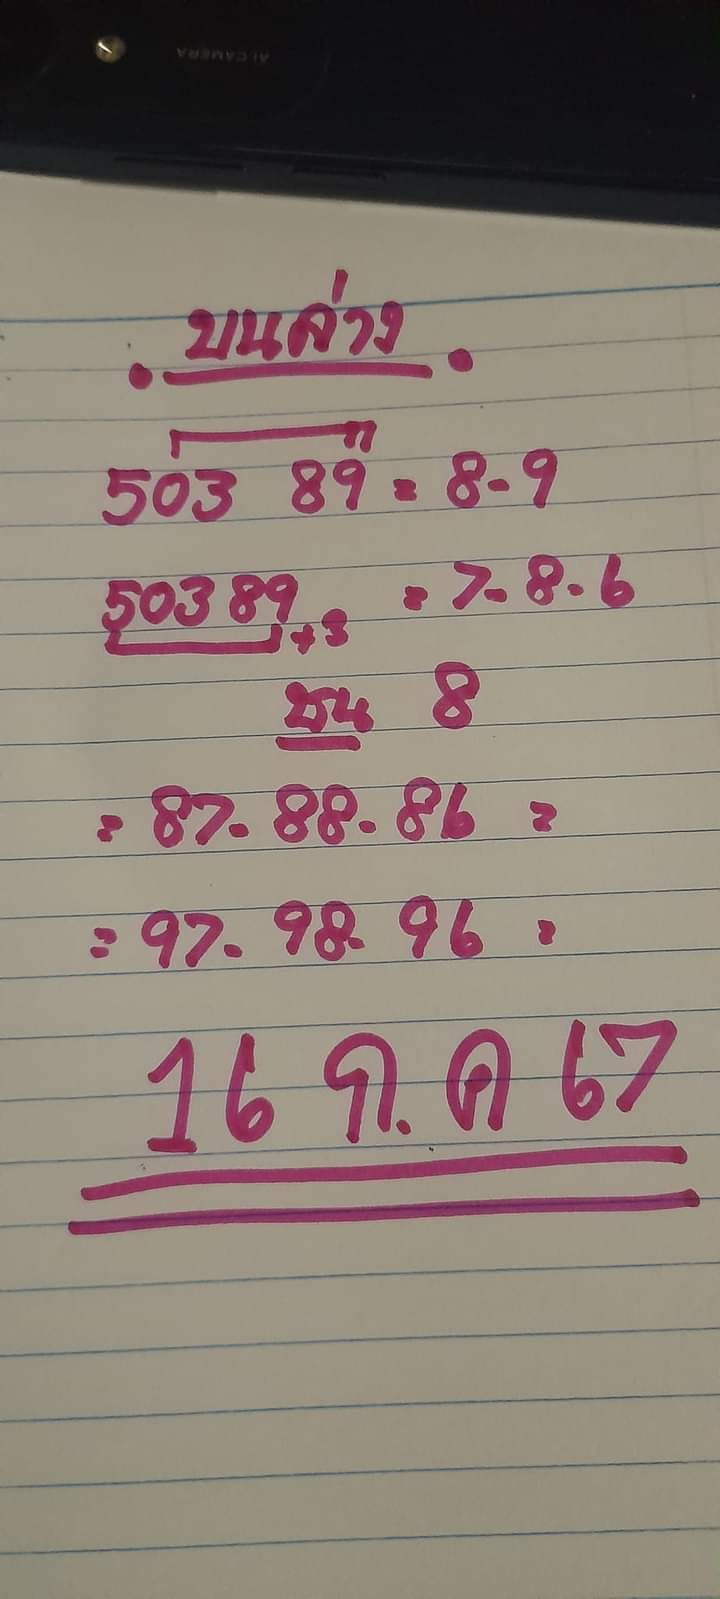 AI CAMERA
บนล่าง
503 89 = 8-9
50389 +3 = 7-8-6
ชน 8
= 87-88-86 =
= 97-98-96 =
16 ก.ค 67